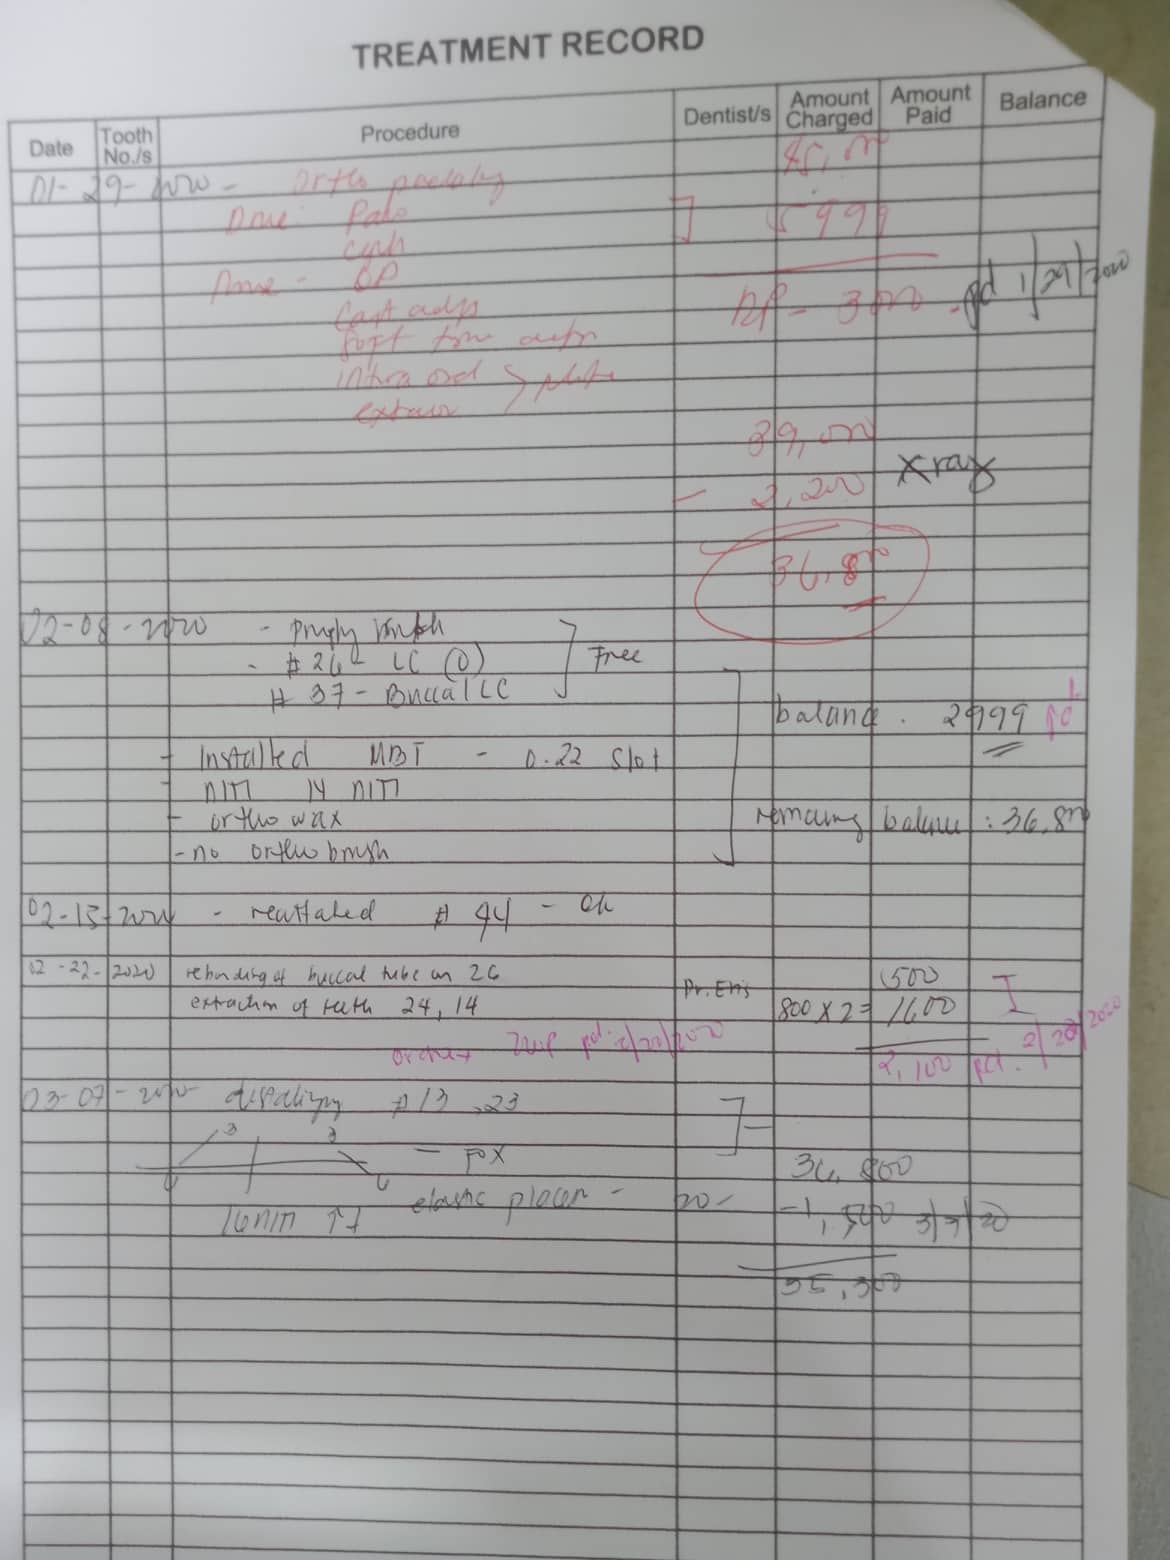 TREATMENT RECORD
Date Tooth No./s Procedure Dentist/s Amount Charged Amount Paid Balance
01-29-2020 - Ortho
Done: Pano
5999
Ceph
Done - OP
DP - 3000 - pd 1/29/2020
Cast
Soft
intra oral
extra
39,000
- 2,200 xray
36,800
02-08-2020 - prophy
- # 26 - LC (O) Free
# 37 - Buccal LC
balance. 2999 pd
- Installed MBT - 0.22 Slot
NITI 14 NITI
- ortho wax remaining balance: 36,800
- no ortho brush
02-15-2020 - reattached # 44 - ok
02-22-2020 rebonding of buccal tube on 26 500
extraction of teeth 24, 14 Dr. Eris 800 x 2 = 1600
pd 2/22/2020
2,100 pd. 2/22/2020
03-07-2020 distalizing # 13, 23
3 3
- FOX 36,800
elastic placer -
16 NITI -1,500 3/7/20
35,300